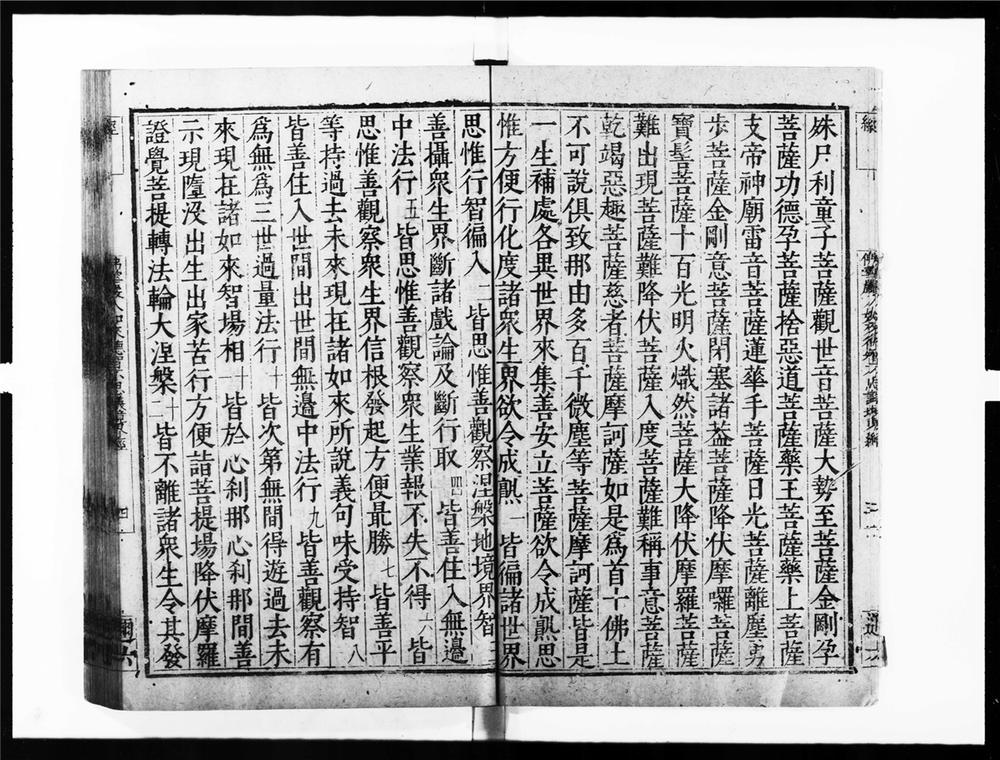 姝尸利童子菩薩觀世音菩薩大勢至菩薩金剛孕
菩薩功德孕菩薩捨惡道菩薩藥王菩薩藥上菩薩
支帝神廟雷音菩薩蓮華手菩薩日光菩薩離塵勇
步菩薩金剛意菩薩閉塞諸葢菩薩降伏摩囉菩薩
寶髻菩薩十百光明火熾然菩薩大降伏摩羅菩薩
難出現菩薩難降伏菩薩入度菩薩難稱事意菩薩
乾竭惡趣菩薩慈者菩薩摩訶薩如是爲首十佛土
不可說俱致那由多百千微塵等菩薩摩訶薩皆是
一生補處各異世界來集善安立菩薩欲令成熟思
惟方便行化度諸衆生界欲令成熟一皆徧諸世界
思惟行智徧入二皆思惟善觀察涅槃地境界智三
善攝衆生界斷諸戲論及斷行取四皆善住入無邊
中法行五皆思惟善觀察衆生業報不失不得六皆
思惟善觀察衆生界信根發起方便最勝七皆善平
等持過去未來現在諸如來所說義句味受持智八
皆善住入世間出世間無邊中法行九皆善觀察有
爲無爲三世過量法行十皆次第無間得遊過去未
來現在諸如來智場相十皆於心刹那心刹那間善
示現墮没出生出家苦行方便詣菩提場降伏摩羅
證覺菩提轉法輪大涅槃十一皆不離諸衆生令其發